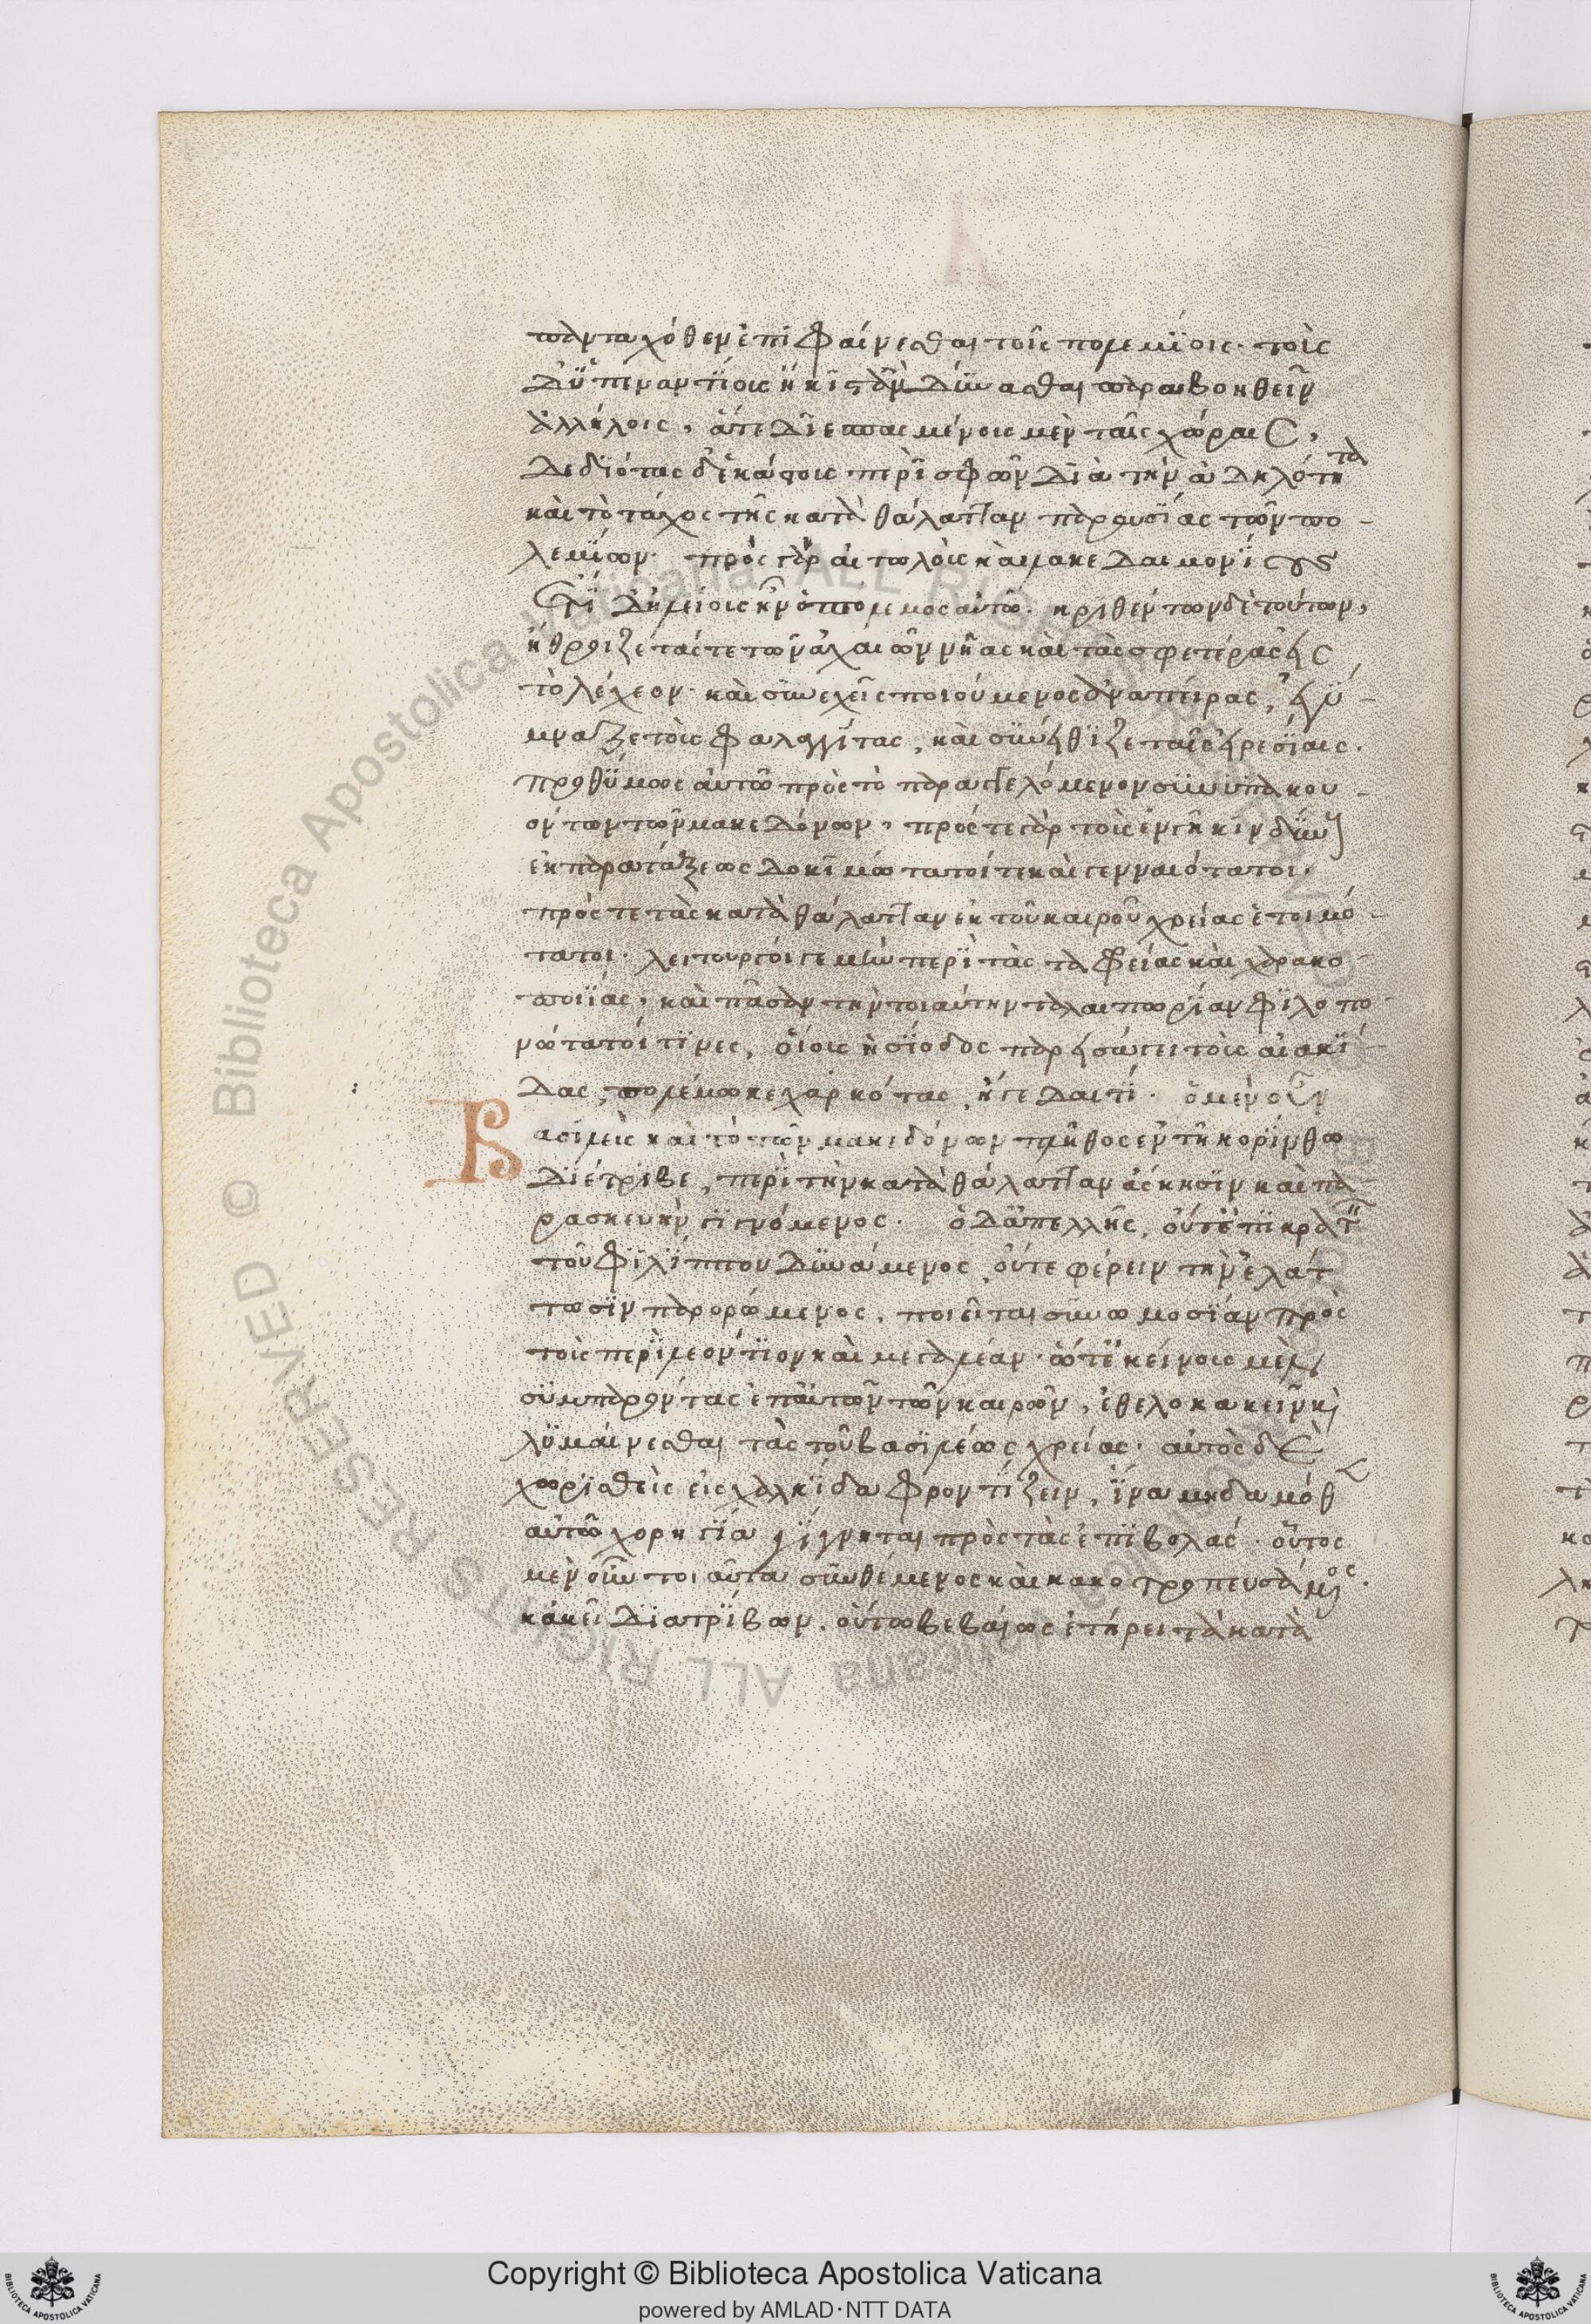 πανταχόθεν ἐπιφαίνεσθαι τοῖς πολεμίοις· τοὺς
δ' ὑπεναντίους ἥκιστ' ἂν δύνασθαι παραβοηθεῖν
ἀλλήλοις, ἅτε διεσπασμένους μὲν ταῖς χώραις,
δεδιότας δ' ἑκάστους περὶ σφῶν διὰ τὴν ἀδηλότητα
καὶ τὸ τάχος τῆς κατὰ θάλατταν παρουσίας τῶν πο-
λεμίων· πρὸς γὰρ αἰτωλοὺς καὶ λακεδαιμονίους
ἔτι δ' ἠλείους ἦν ὁ πόλεμος αὐτῷ. κριθέντων δὲ τούτων,
ἤθροιζε τάς τε τῶν ἀχαιῶν νῆας καὶ τὰς σφετέρας εἰς
τὸ λέχεον· καὶ συνεχεῖς ποιούμενος ἀναπείρας, ἐγύ-
μναζε τοὺς φαλαγγίτας, καὶ συνείθιζε ταῖς εἰρεσίαις.
προθύμως αὐτῷ πρὸς τὸ παραγγελόμενον συνυπακου-
όντων τῶν μακεδόνων, πρός τε γὰρ τοὺς ἐν γῇ κινδύνους
ἐκ παρατάξεως δοκιμώτατοί τε καὶ γενναιότατοι.
πρός τε τὰς κατὰ θάλατταν ἐκ τοῦ καιροῦ χρείας ἑτοιμό-
τατοι· λειτουργοί γε μὴν περὶ τὰς ταφρείας καὶ χαρακο-
ποιίας, καὶ πᾶσαν τὴν τοιαύτην ταλαιπωρίαν φιλοπο-
νώτατοί τινες, οἵους ἡσίοδος παρεισάγει τοὺς αἰακί-
δας, πολέμῳ κεχαρηότας ἠύτε δαιτί. ὁ μὲν οὖν
βασιλεὺς καὶ τὸ τῶν μακεδόνων πλῆθος ἐν τῇ κορίνθῳ
διέτριβε, περὶ τὴν κατὰ θάλατταν ἄσκησιν καὶ πα-
ρασκευὴν γιγνόμενος. ὁ δ' ἀπελλῆς, οὔτ' ἐπικρατεῖν
τοῦ φιλίππου δυνάμενος, οὔτε φέρειν τὴν ἐλάτ-
τωσιν παρορώμενος, ποιεῖται συνωμοσίαν πρὸς
τοὺς περὶ λεόντιον καὶ μεγαλέαν· ὥστ' ἐκείνους μὲν
συμπαρόντας ἐπ' αὐτῶν τῶν καιρῶν, ἐθελοκακεῖν καὶ
λυμαίνεσθαι τὰς τοῦ βασιλέως χρείας· αὐτὸς δὲ
χωρισθεὶς εἰς χαλκίδα φροντίζειν, ἵνα μηδαμόθεν
αὐτῷ χορηγία γίγνηται πρὸς τὰς ἐπιβολάς. οὗτος
μὲν οὖν τοιαῦτα συνθέμενος καὶ κακοτροπευσάμενος.
κἀκεῖ διατρίβων. οὕτω βεβαίως ἐτήρει τὰ κατὰ
Copyright © Biblioteca Apostolica Vaticana
powered by AMLAD·NTT DATA